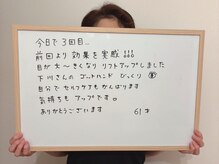 今日で3回目…
前回より効果を実感!!!
目が大〜きくなり リフトアップしました
下川さんの ゴットハンド びっくり
自分で セルフケアも がんばります
気持ちも アップです。
ありがとうございます 61才